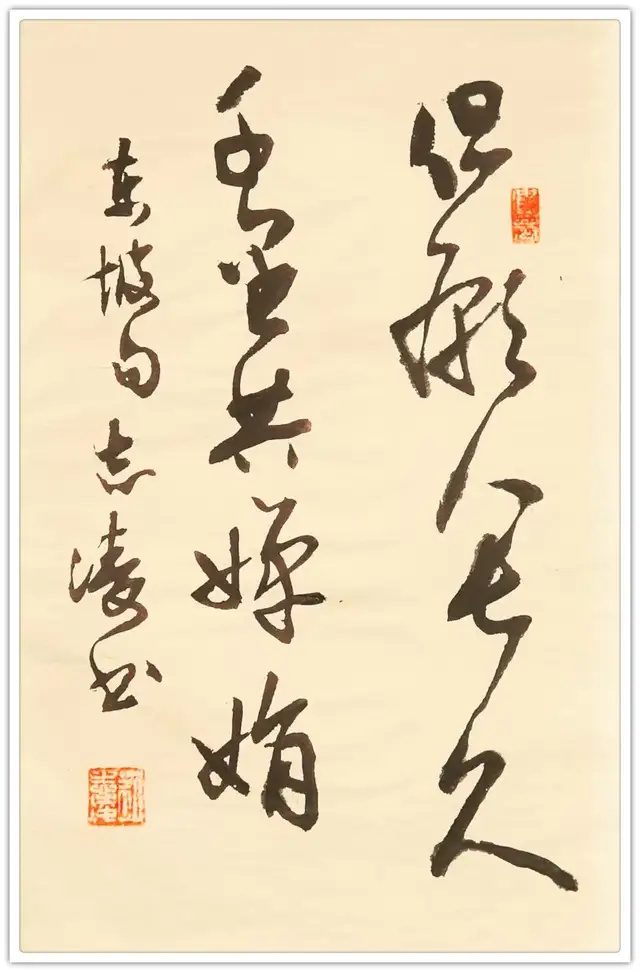 但願人长久
千里共婵娟
东坡句志凌书